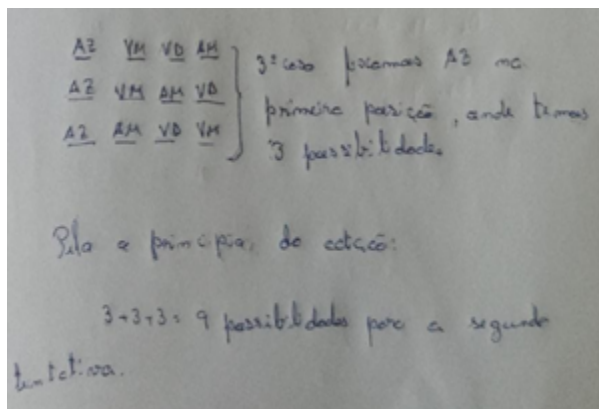 AZ VM VD AM
AZ VM AM VD
AZ AM VD VM
3º caso fixamos AZ na
primeira posição, onde temos
3 possibilidades
Pela a principia, do adição:
3+3+3= 9 possibilidades para a segunda
tentativa.